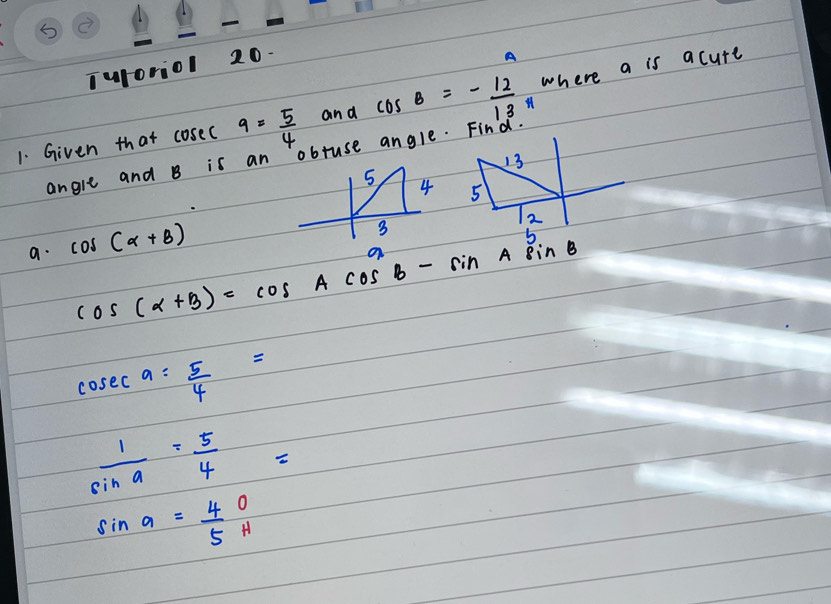 Tutorial 20.
1. Given that cosec a = 5/4 and cos B = - 12/13 where a is acute
A
H
angle and B is an obtuse angle. Find.
5 4 3 a
13 5 12 b
a. cos (α + B)
cos (α + B) = cos A cos B - sin A sin B
cosec a = 5/4 =
1/sin a = 5/4 =
sin a = 4/5 O H